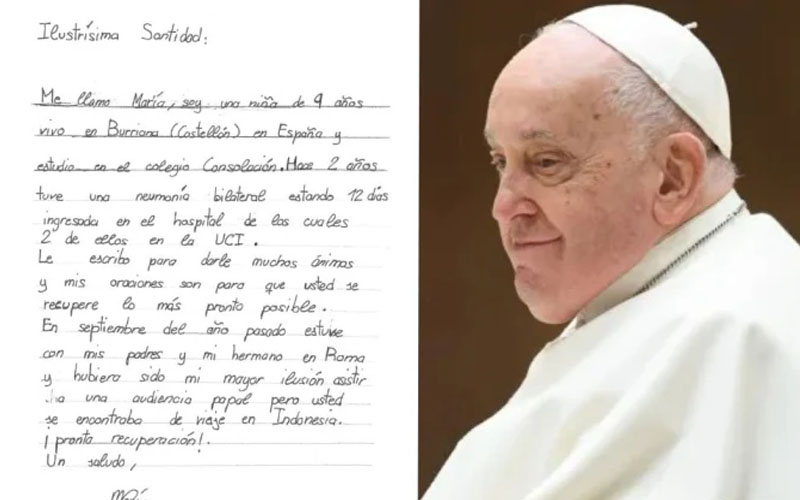 Ilustrísima Santidad:
Me llamo María, soy una niña de 9 años
vivo en Burriana (Castellón) en España y
estudio en el colegio Consolación. Hace 2 años
tuve una neumonía bilateral estando 12 días
ingresada en el hospital de los cuales
2 de ellos en la UCI.
Le escribo para darle muchos ánimos
y mis oraciones son para que usted se
recupere lo más pronto posible.
En septiembre del año pasado estuve
con mis padres y mi hermano en Roma
y hubiera sido mi mayor ilusión asistir
ha una audiencia papal pero usted
se encontraba de viaje en Indonesia.
¡pronta recuperación!.
Un saludo,